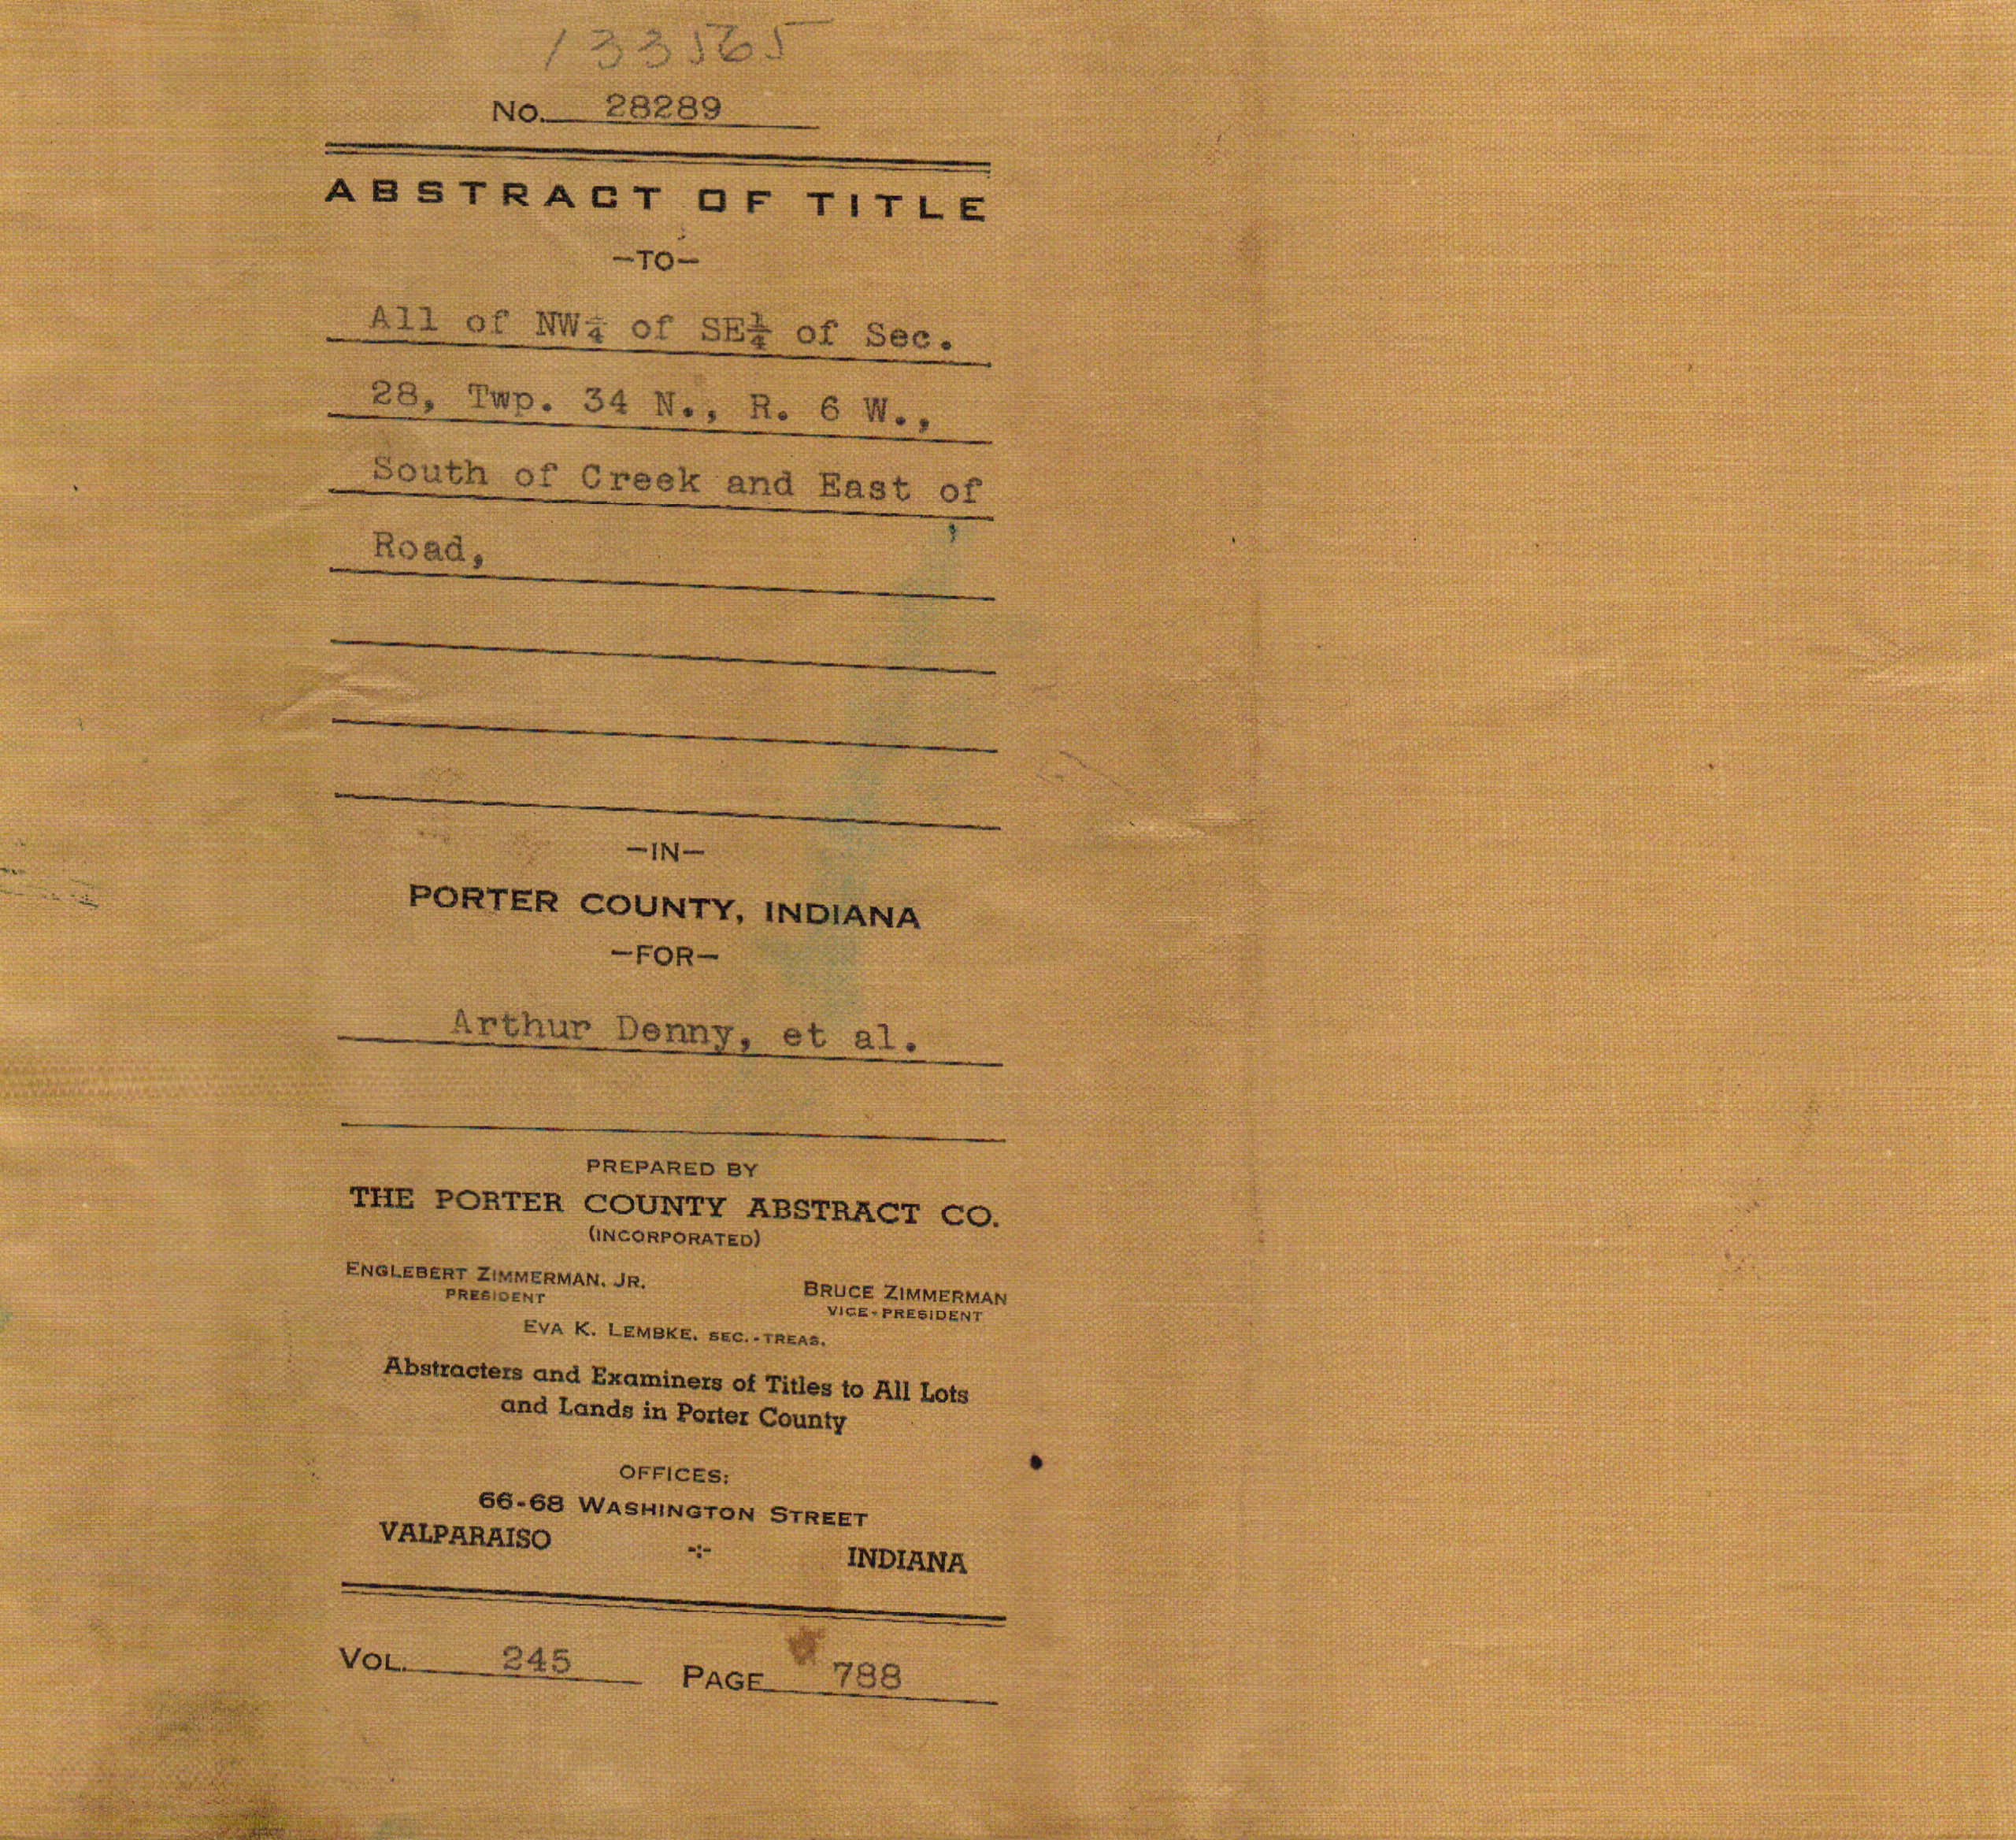 133565
No. 28289
ABSTRACT OF TITLE
—TO—
All of NW¼ of SE¼ of Sec.
28, Twp. 34 N., R. 6 W.,
South of Creek and East of
Road,
—IN—
PORTER COUNTY, INDIANA
—FOR—
Arthur Denny, et al.
PREPARED BY
THE PORTER COUNTY ABSTRACT CO.
(INCORPORATED)
ENGLEBERT ZIMMERMAN, JR. BRUCE ZIMMERMAN
PRESIDENT VICE-PRESIDENT
EVA K. LEMBKE, SEC.-TREAS.
Abstracters and Examiners of Titles to All Lots
and Lands in Porter County
OFFICES:
66-68 WASHINGTON STREET
VALPARAISO -:- INDIANA
VOL. 245 PAGE 788